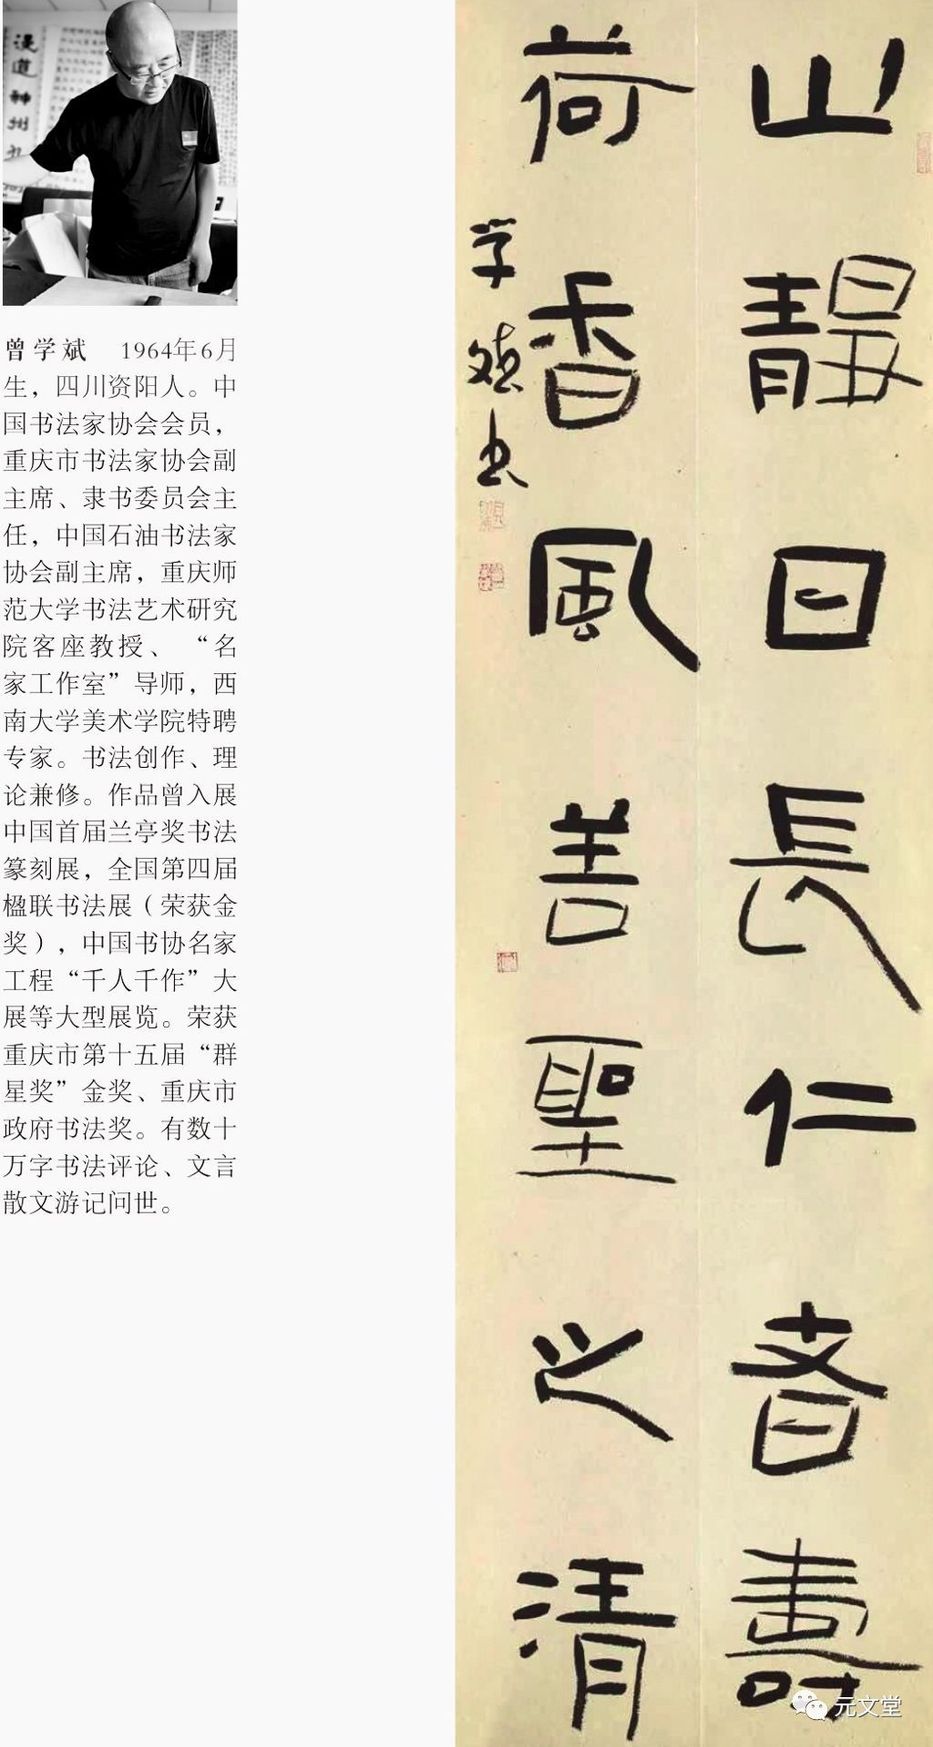 漫道神州
曾学斌 1964年6月
生，四川资阳人。中
国书法家协会会员，
重庆市书法家协会副
主席、隶书委员会主
任，中国石油书法家
协会副主席，重庆师
范大学书法艺术研究
院客座教授、“名
家工作室”导师，西
南大学美术学院特聘
专家。书法创作、理
论兼修。作品曾入展
中国首届兰亭奖书法
篆刻展，全国第四届
楹联书法展（荣获金
奖），中国书协名家
工程“千人千作”大
展等大型展览。荣获
重庆市第十五届“群
星奖”金奖、重庆市
政府书法奖。有数十
万字书法评论、文言
散文游记问世。
山靜日長仁者壽
荷香風善聖之清
学斌书
元文堂